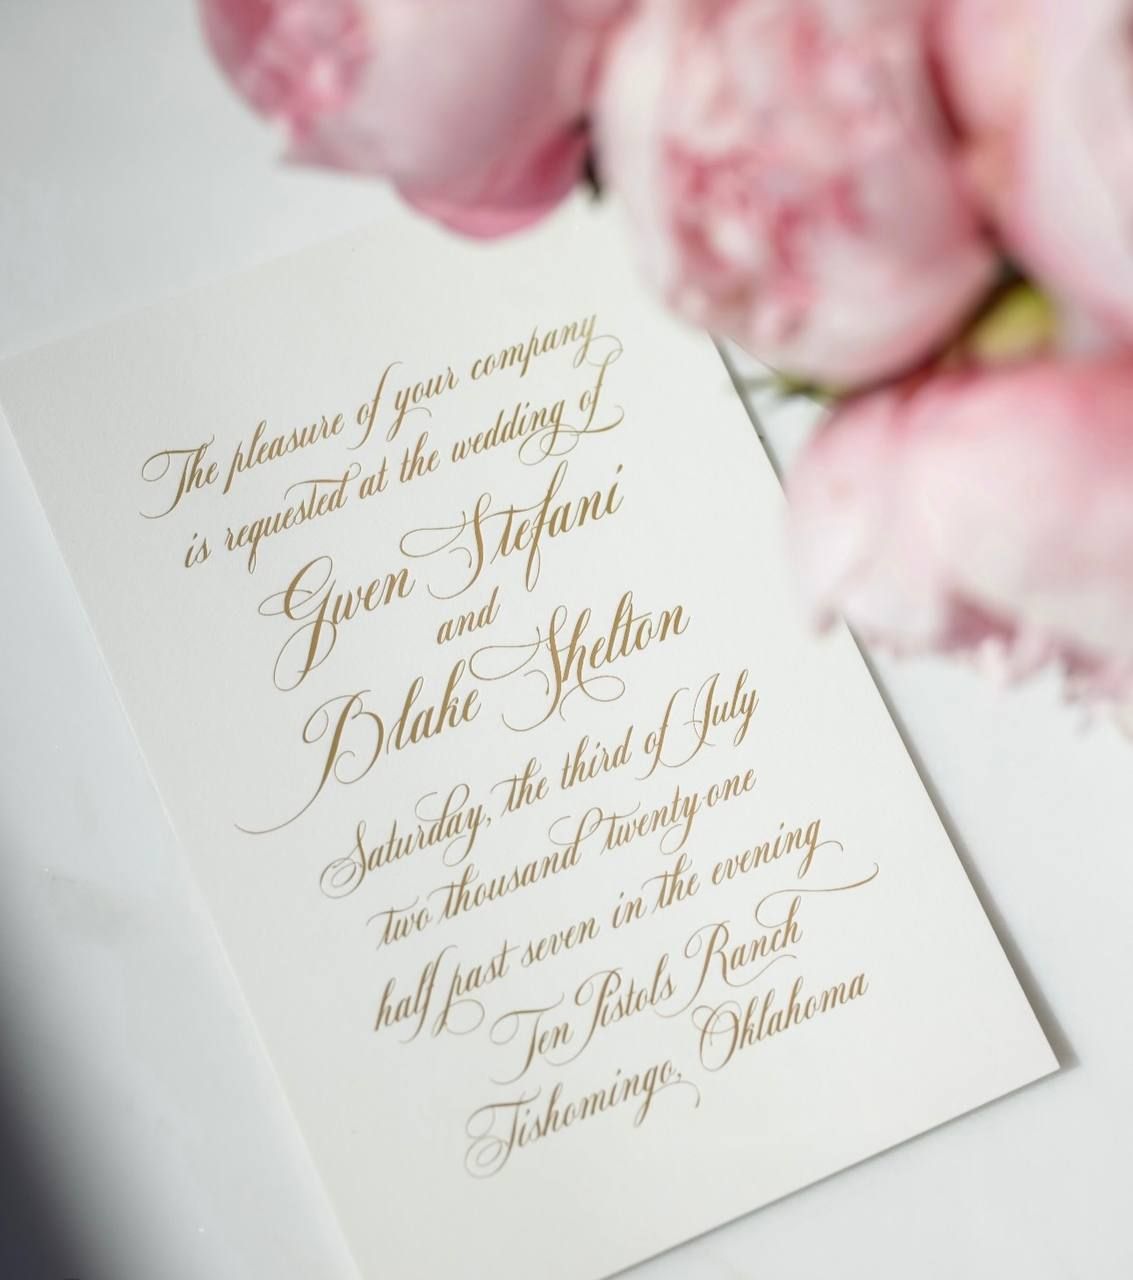 The pleasure of your company
is requested at the wedding of
Gwen Stefani
and
Blake Shelton
Saturday, the third of July
two thousand twenty-one
half past seven in the evening
Ten Pistols Ranch
Tishomingo, Oklahoma